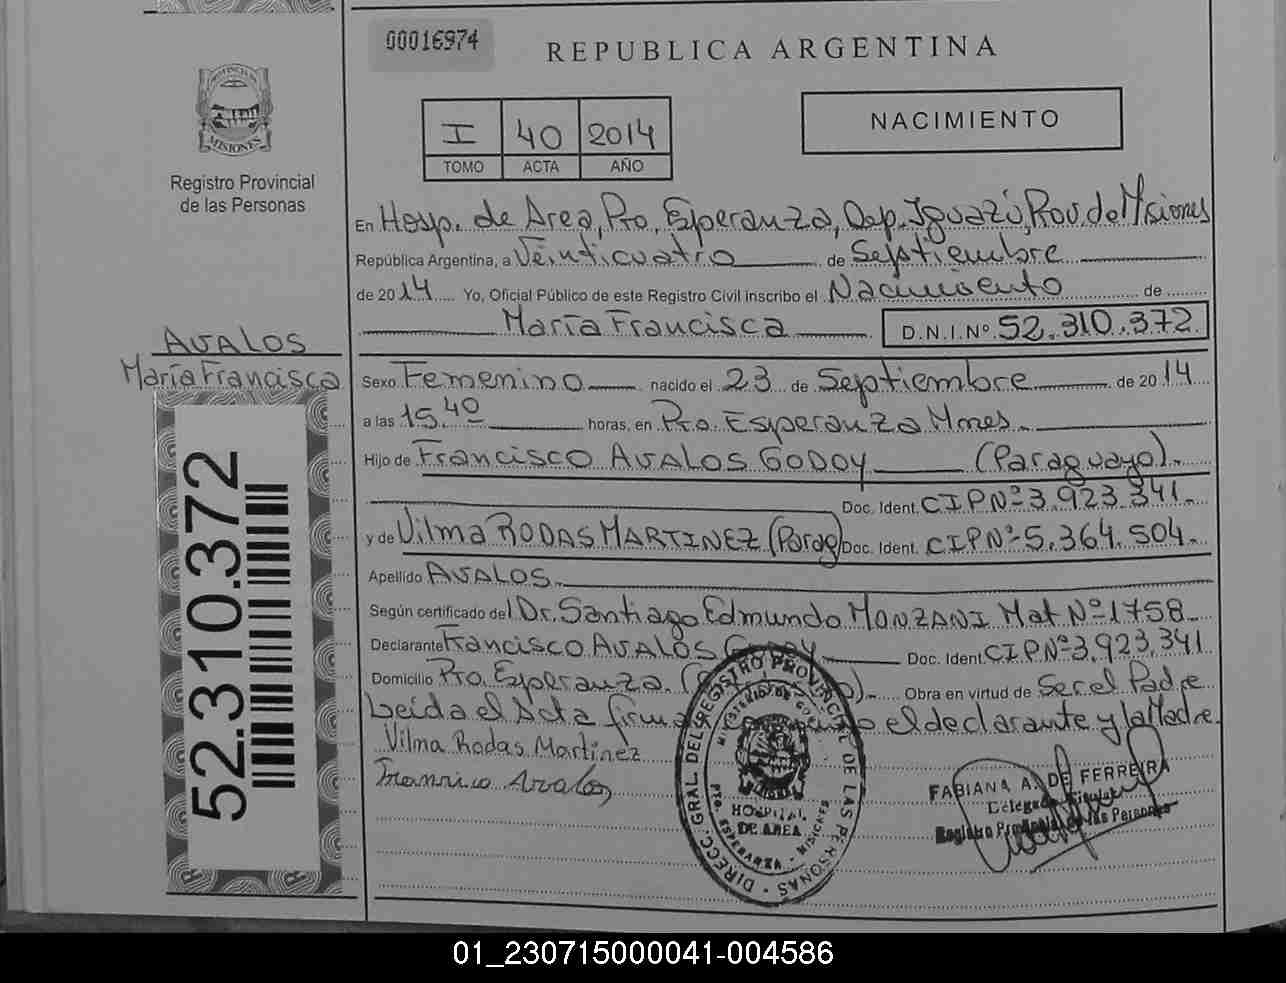 00016974
REPUBLICA ARGENTINA
I 40 2014
TOMO ACTA AÑO
NACIMIENTO
MISIONES
Registro Provincial
de las Personas
En Hosp. de Area, Pto. Esperanza, Dep. Iguazú, Prov. de Misiones
República Argentina, a Veinticuatro de Septiembre
de 2014 Yo, Oficial Público de este Registro Civil inscribo el Nacimiento de
María Francisca D.N.I.Nº 52.310.372
AVALOS
María Francisca
Sexo Femenino nacido el 23 de Septiembre de 2014
a las 15.40 horas, en Pto. Esperanza Mnes.
Hijo de Francisco AVALOS GODOY (Paraguayo).
Doc. Ident. CIPNº 3.923.341.
y de Vilma RODAS MARTINEZ (Parag) Doc. Ident. CIPNº 5.364.504.
Apellido AVALOS.
Según certificado del Dr. Santiago Edmundo MANZANI Mat Nº 1758
Declarante Francisco AVALOS GODOY Doc. Ident. CIPNº 3.923.341
Domicilio Pto. Esperanza. Obra en virtud de Ser el Padre
Leída el Acta el declarante y la Madre.
Vilma Rodas Martinez
Francisco Avalos
52.310.372
DIRECC. GRAL DEL REGISTRO PROVINCIAL DE LAS PERSONAS
MINISTERIO DE
HOSPITAL
DE AREA
PTO. ESPERANZA - MISIONES
FABIANA A. DE FERREIRA
Delegada Titular
Registro Provincial de las Personas
01_230715000041-004586